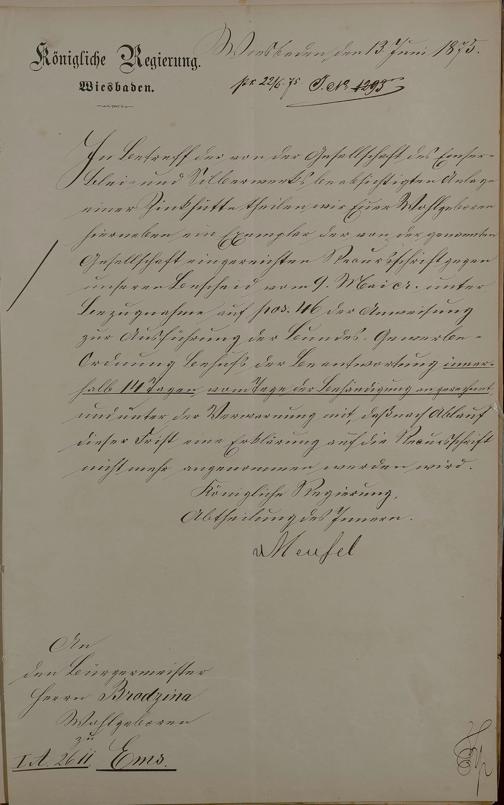 Königliche Regierung.
Wiesbaden.
Wiesbaden, den 13 Juni 1875.
pr 22/6 75 J. No 1293
In Betreff der von der Gesellschaft des Emser-
Blei- und Silberwerks beabsichtigten Anlage
einer Zinkhütte theilen wir Euer Wohlgeboren
hierneben ein Exemplar der von der genannten
Gesellschaft eingereichten Recursschrift gegen
unseren Bescheid vom 9. Mai cr. unter
Bezugnahme auf pos. 46 der Anweisung
zur Ausführung der Bundes-Gewerbe-
Ordnung behufs der Beantwortung inner-
halb 14 Tagen vom Tage der Behändigung angerechnet
und unter der Verwarnung mit, daß nach Ablauf
dieser Frist eine Erklärung auf die Recursschrift
nicht mehr angenommen werden wird.
Königliche Regierung,
Abtheilung des Innern.
An
den Bürgermeister
Herrn Brodzina
Wohlgeboren
zu
I. A. 2611 Ems.